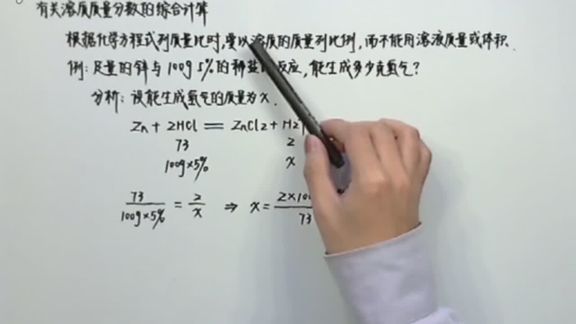 有关溶质质量分数的综合计算
根据化学方程式列质量比时,要以溶质的质量列比例,而不能用溶液质量或体积.
例:足量的锌与100g 5%的稀盐 反应,能生成多少克氢气?
分析:设能生成氢气的质量为x.
Zn + 2HCl == ZnCl2 + H2
73 2
100g×5% x
73/100g×5% = 2/x ⇒ x = 2×10 /73